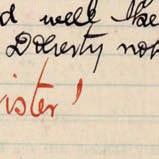 d well the
Doherty no
ister!